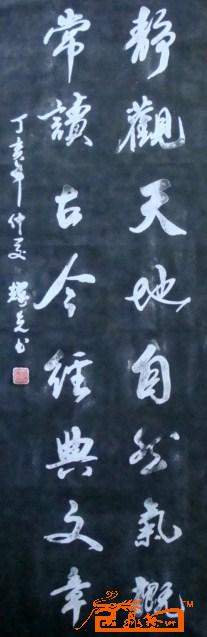 靜觀天地自然氣概
常讀古今經典文章
丁亥年仲夏